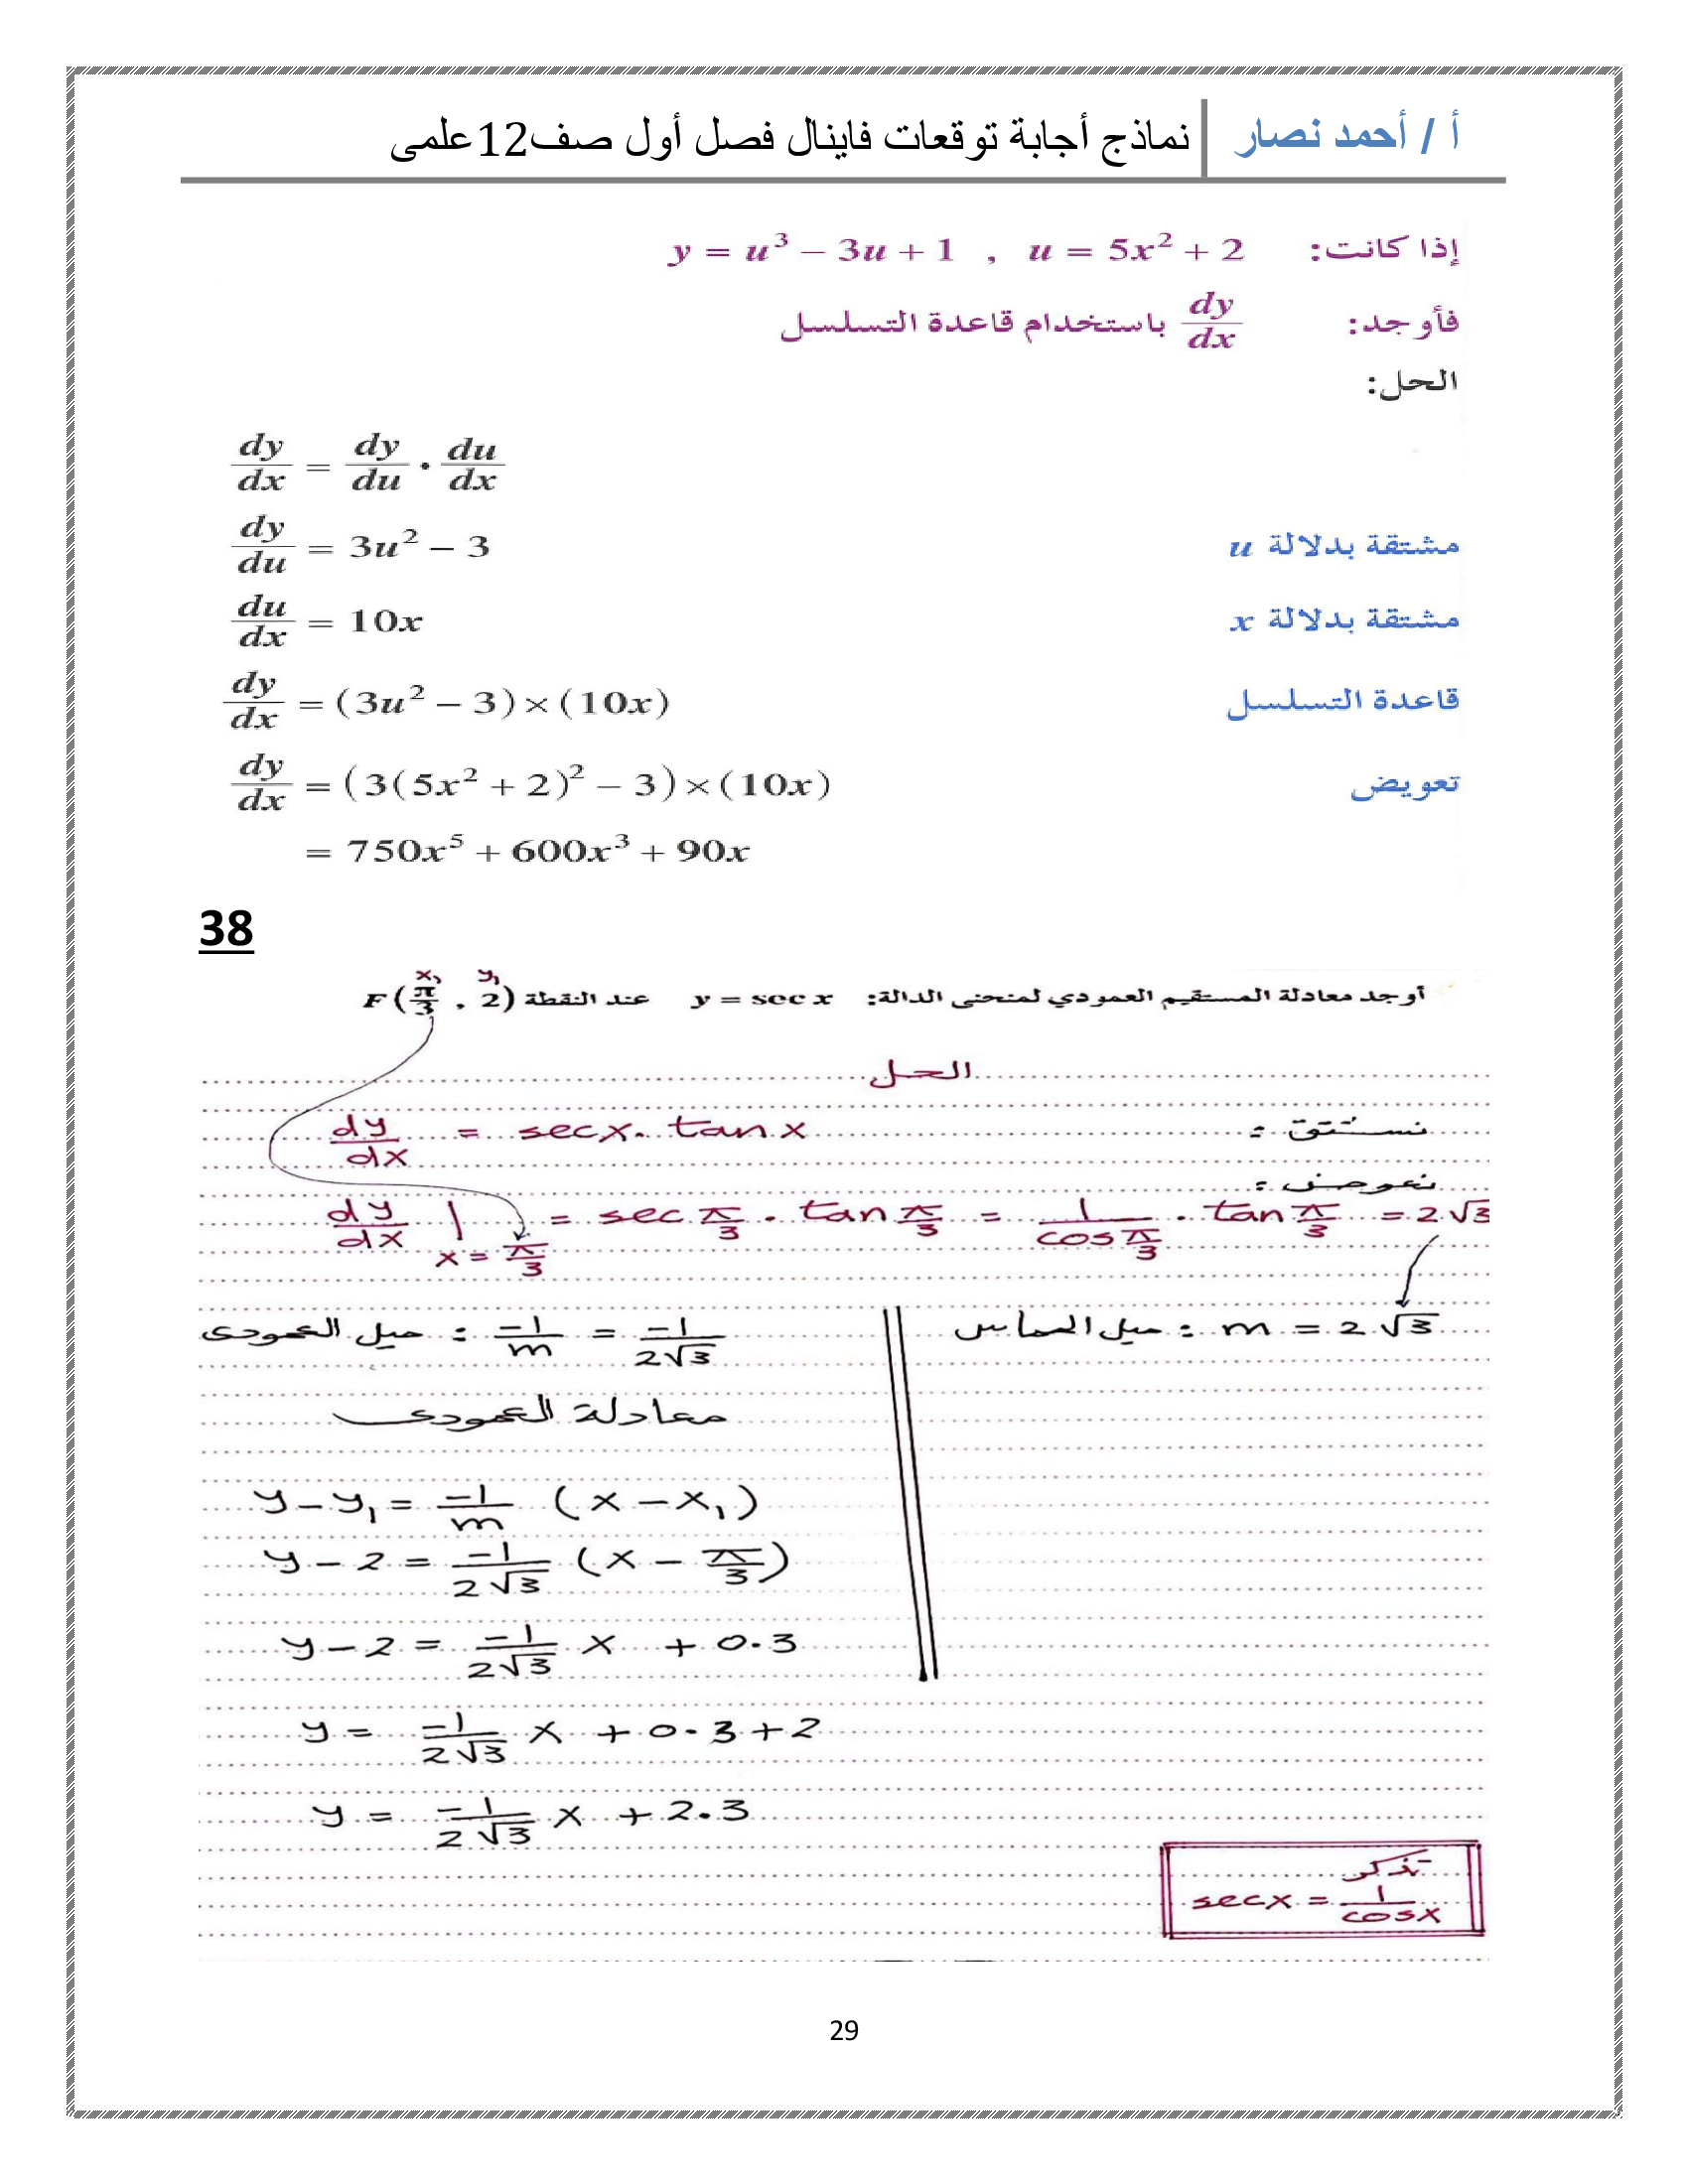 أ / أحمد نصار نماذج أجابة توقعات فاينال فصل أول صف12علمى
إذا كانت: y = u³ − 3u + 1 , u = 5x² + 2
فأوجد: dy/dx باستخدام قاعدة التسلسل
الحل:
dy/dx = dy/du · du/dx
dy/du = 3u² − 3 مشتقة بدلالة u
du/dx = 10x مشتقة بدلالة x
dy/dx = (3u² − 3)×(10x) قاعدة التسلسل
dy/dx = (3(5x² + 2)² − 3)×(10x) تعويض
= 750x⁵ + 600x³ + 90x
38
x₁ y₁
أوجد معادلة المستقيم العمودي لمنحنى الدالة: y = sec x عند النقطة F(π/3 , 2)
الحل
نشتق : dy/dx = secx . tanx
نعوض :
dy/dx | x = π/3 = sec π/3 . tan π/3 = 1/cos π/3 . tan π/3 = 2√3
ميل المماس : m = 2√3
ميل العمودى : −1/m = −1/2√3
معادلة العمودى
y − y₁ = −1/m (x − x₁)
y − 2 = −1/2√3 (x − π/3)
y − 2 = −1/2√3 x + 0.3
y = −1/2√3 x + 0.3 + 2
y = −1/2√3 x + 2.3
تذكر
secx = 1/cosx
29